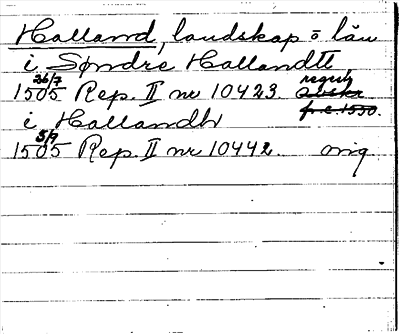 Halland, landskap o län
i Søndre Hallandtt
1505 26/7 Rep. II nr 10423. regist
avskr
f. c. 1550.
i Hallandh
1505 5/9 Rep. II nr 10442. orig